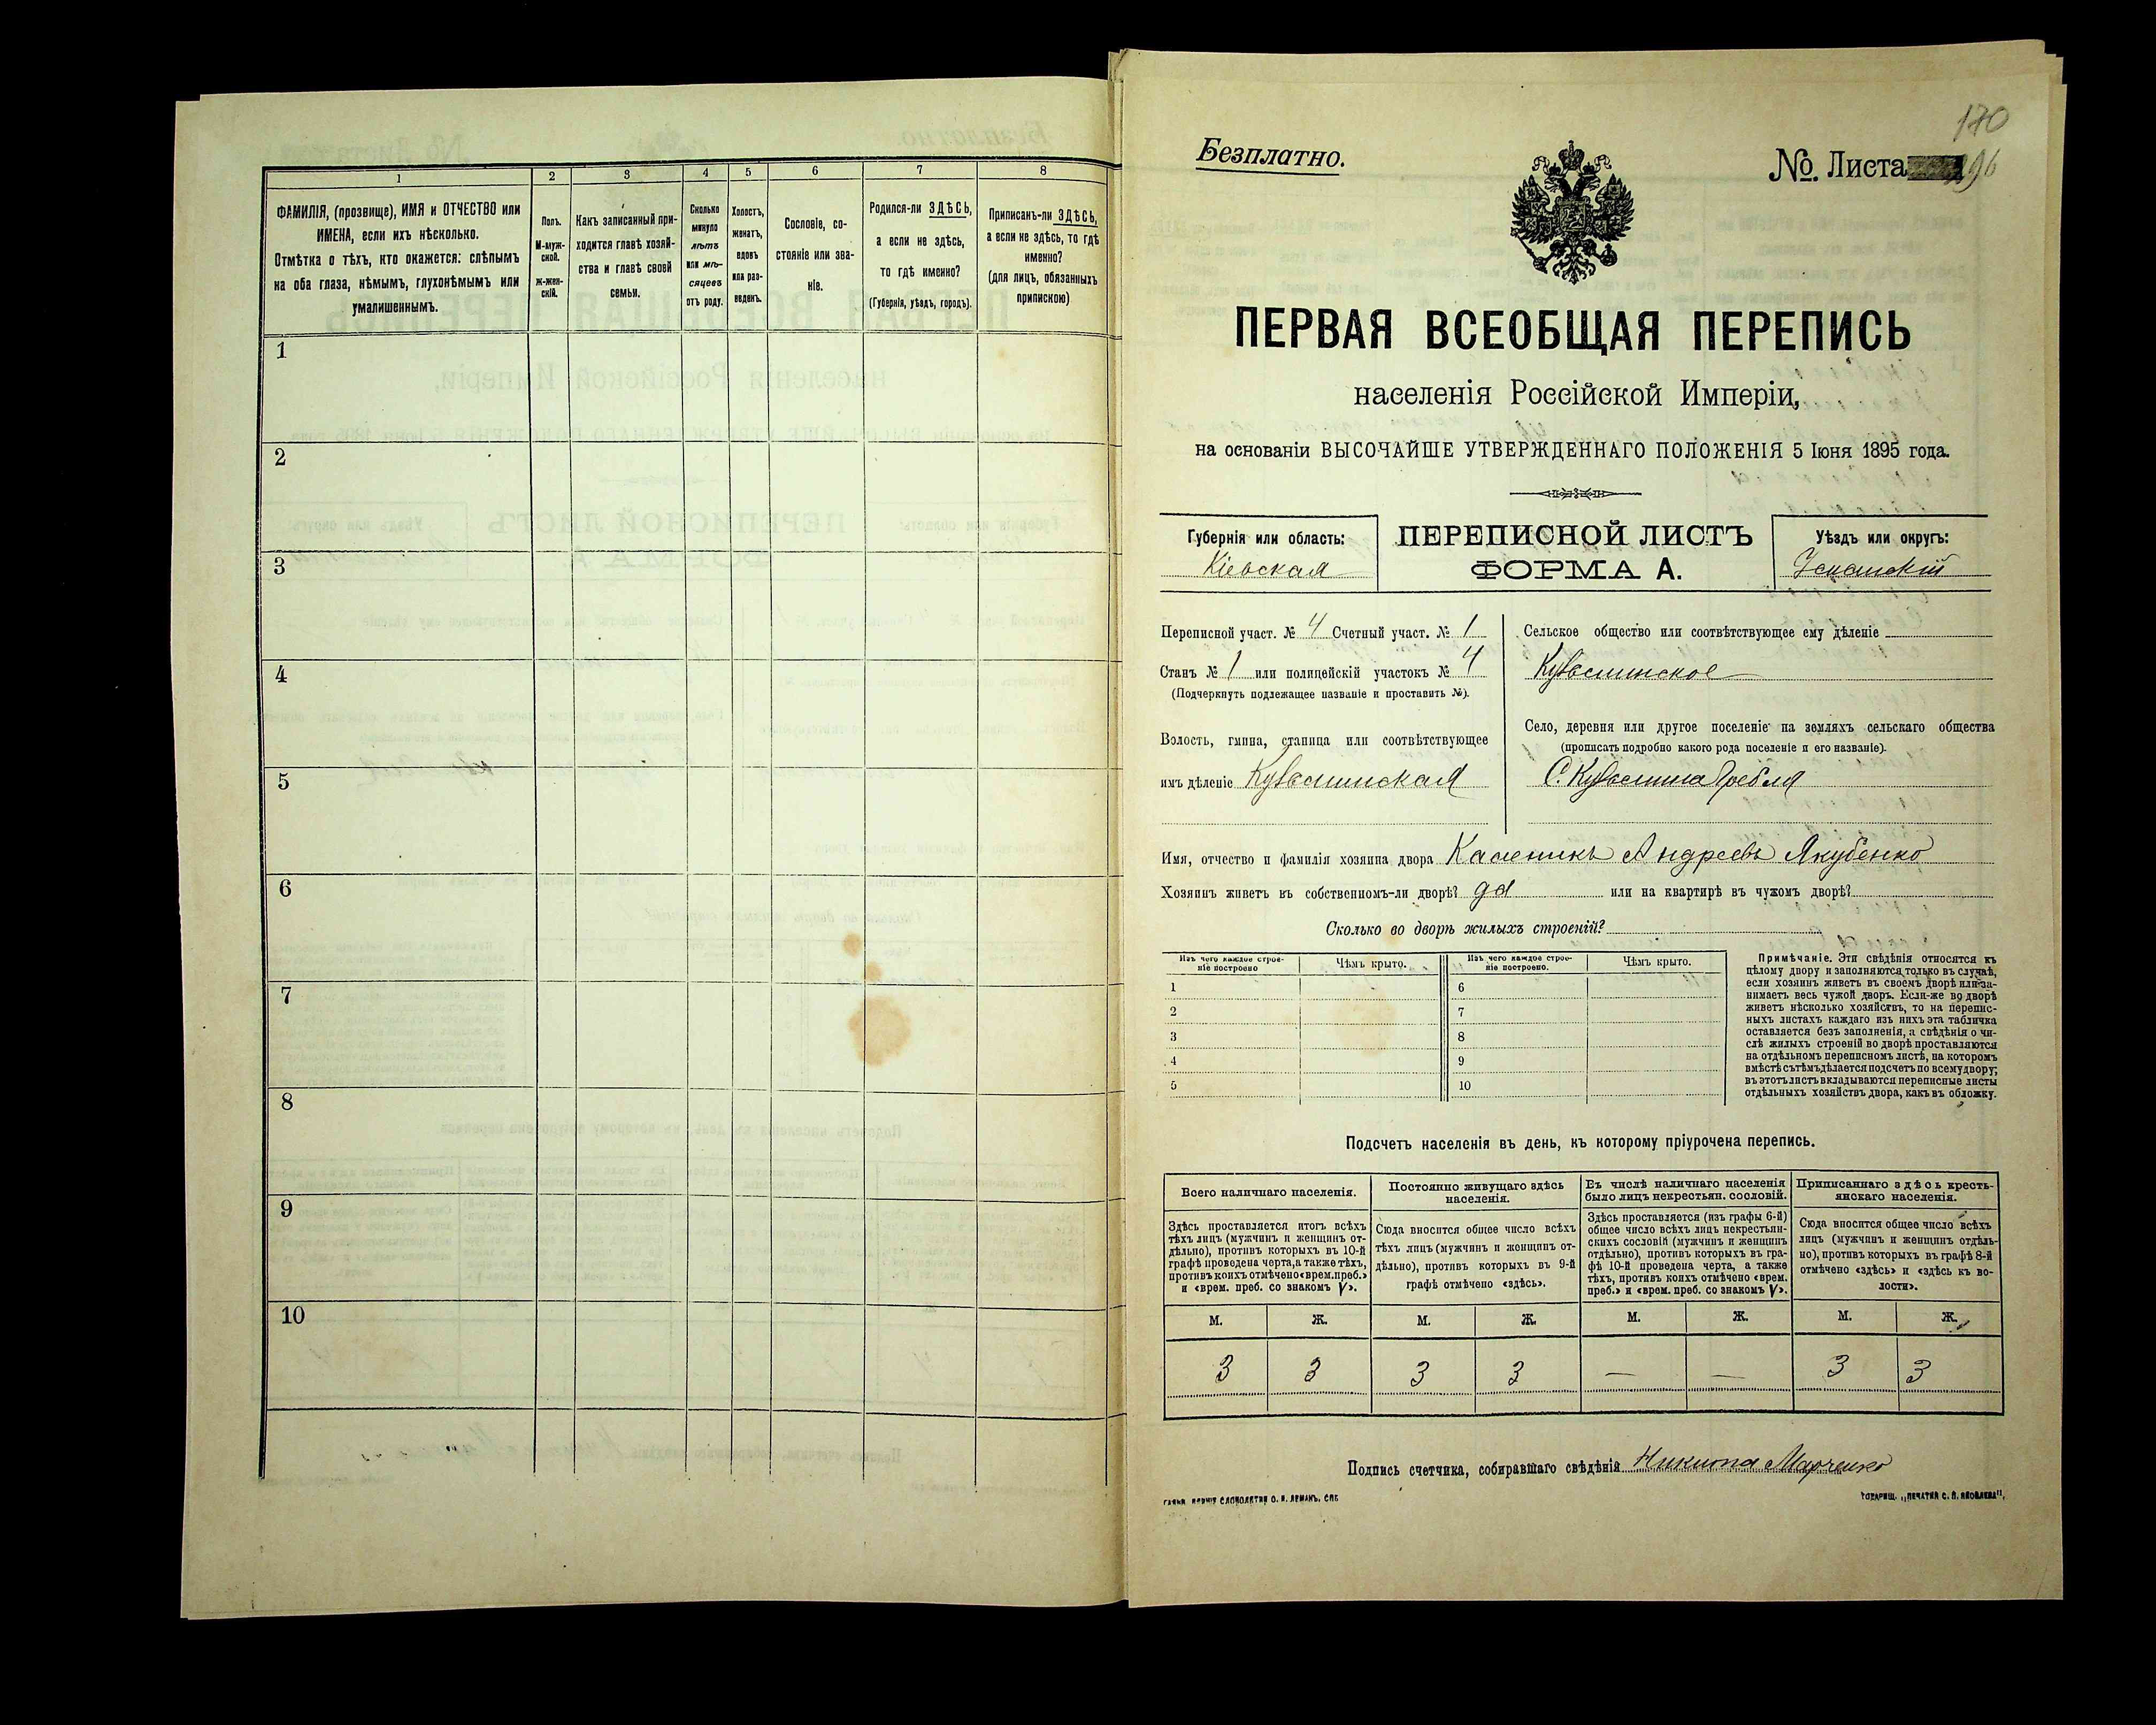 1
2
3
4
5
6
7
8
ФАМИЛІЯ, (прозвище), ИМЯ и ОТЧЕСТВО или
ИМЕНА, если ихъ нѣсколько.
Отмѣтка о тѣхъ, кто окажется: слѣпымъ
на оба глаза, нѣмымъ, глухонѣмымъ или
умалишеннымъ.
Полъ.
М-муж-
ской.
ж-жен-
скій.
Какъ записанный при-
ходится главѣ хозяй-
ства и главѣ своей
семьи.
Сколько
минуло
лѣтъ
или мѣ-
сяцевъ
отъ роду.
Холостъ,
женатъ,
вдовъ
или раз-
веденъ.
Сословіе, со-
стояніе или зва-
ніе.
Родился-ли ЗДѢСЬ,
а если не здѣсь,
то гдѣ именно?
(Губернія, уѣздъ, городъ).
Приписанъ-ли ЗДѢСЬ,
а если не здѣсь, то гдѣ
именно?
(для лицъ, обязанныхъ
припискою)
1
2
3
4
5
6
7
8
9
10
170
Безплатно.
№. Листа 196
ПЕРВАЯ ВСЕОБЩАЯ ПЕРЕПИСЬ
населенія Россійской Имперіи,
на основаніи ВЫСОЧАЙШЕ УТВЕРЖДЕННАГО ПОЛОЖЕНІЯ 5 Іюня 1895 года.
Губернія или область:
Кіевская
ПЕРЕПИСНОЙ ЛИСТЪ
ФОРМА А.
Уѣздъ или округъ:
Уманскій
Переписной участ. № 4 Счетный участ. № 1
Станъ № 1 или полицейскій участокъ № 4
(Подчеркнуть подлежащее названіе и проставить №).
Волость, гмина, станица или соотвѣтствующее
имъ дѣленіе Кузьминская
Сельское общество или соотвѣтствующее ему дѣленіе
Кузьминское
Село, деревня или другое поселеніе на земляхъ сельскаго общества
(прописать подробно какого рода поселеніе и его названіе).
С. Кузьмина Гребля
Имя, отчество и фамилія хозяина двора Каленикъ Андреевъ Якубенко
Хозяинъ живетъ въ собственномъ-ли дворѣ? да или на квартирѣ въ чужомъ дворѣ?
Сколько во дворѣ жилыхъ строеній?
Изъ чего каждое строе-
ніе построено
Чѣмъ крыто.
Изъ чего каждое строе-
ніе построено.
Чѣмъ крыто.
1
2
3
4
5
6
7
8
9
10
Примѣчаніе. Эти свѣдѣнія относятся къ
цѣлому двору и заполняются только въ случаѣ,
если хозяинъ живетъ въ своемъ дворѣ или за-
нимаетъ весь чужой дворъ. Если-же во дворѣ
живетъ нѣсколько хозяйствъ, то на перепис-
ныхъ листахъ каждаго изъ нихъ эта табличка
оставляется безъ заполненія, а свѣдѣнія о чи-
слѣ жилыхъ строеній во дворѣ проставляются
на отдѣльномъ переписномъ листѣ, на которомъ
вмѣстѣ съ тѣмъ дѣлается подсчетъ по всему двору;
въ этотъ листъ вкладываются переписные листы
отдѣльныхъ хозяйствъ двора, какъ въ обложку.
Подсчетъ населенія въ день, къ которому пріурочена перепись.
Всего наличнаго населенія.
Постоянно живущаго здѣсь
населенія.
Въ числѣ наличнаго населенія
было лицъ некрестьян. сословій.
Приписаннаго здѣсь кресть-
янскаго населенія.
Здѣсь проставляется итогъ всѣхъ
тѣхъ лицъ (мужчинъ и женщинъ от-
дѣльно), противъ которыхъ въ 10-й
графѣ проведена черта, а также тѣхъ,
противъ коихъ отмѣчено «врем. преб.»
и «врем. преб. со знакомъ V».
Сюда вносится общее число всѣхъ
тѣхъ лицъ (мужчинъ и женщинъ от-
дѣльно), противъ которыхъ въ 9-й
графѣ отмѣчено «здѣсь».
Здѣсь проставляется (изъ графы 6-й)
общее число всѣхъ лицъ некрестьян-
скихъ сословій (мужчинъ и женщинъ
отдѣльно), противъ которыхъ въ гра-
фѣ 10-й проведена черта, а также
тѣхъ, противъ коихъ отмѣчено «врем.
преб.» и «врем. преб. со знакомъ V».
Сюда вносится общее число всѣхъ
лицъ (мужчинъ и женщинъ отдѣль-
но), противъ которыхъ въ графѣ 8-й
отмѣчено «здѣсь» и «здѣсь къ во-
лости».
М. Ж. М. Ж. М. Ж. М. Ж.
3 3 3 3 — — 3 3
Подпись счетчика, собиравшаго свѣдѣнія Никита Марченко
ТОВАРИЩ. „ПЕЧАТНЯ С. П. ЯКОВЛЕВА“,